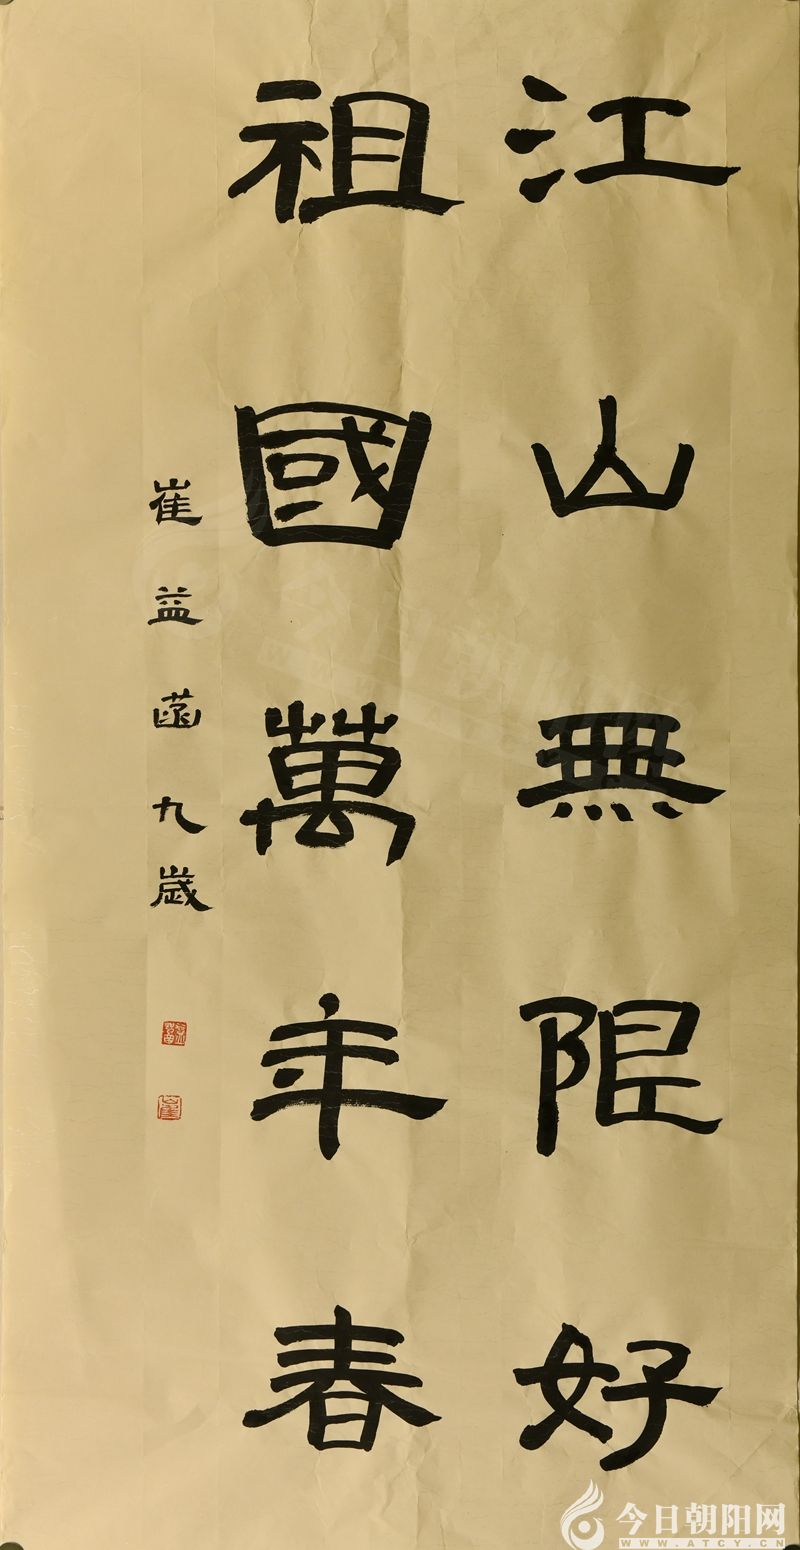 江山無限好
祖國萬年春
崔益菡九歲
今日朝阳网
WWW.ATCY.CN